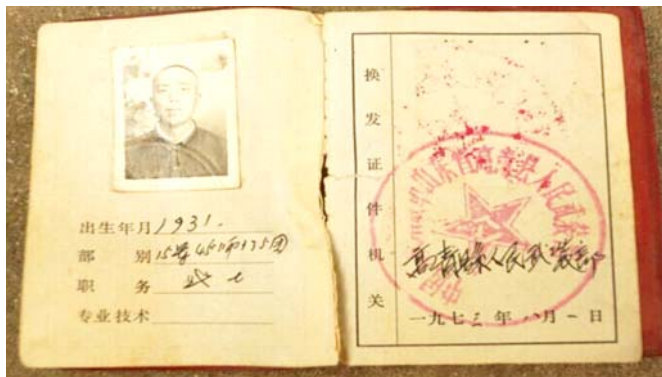 出生年月 1931.
部别 15军45师135团
职务 战士
专业技术
换发证件机关
山东省高青县人民武装部
高青县人民武装部
一九七三年八月一日